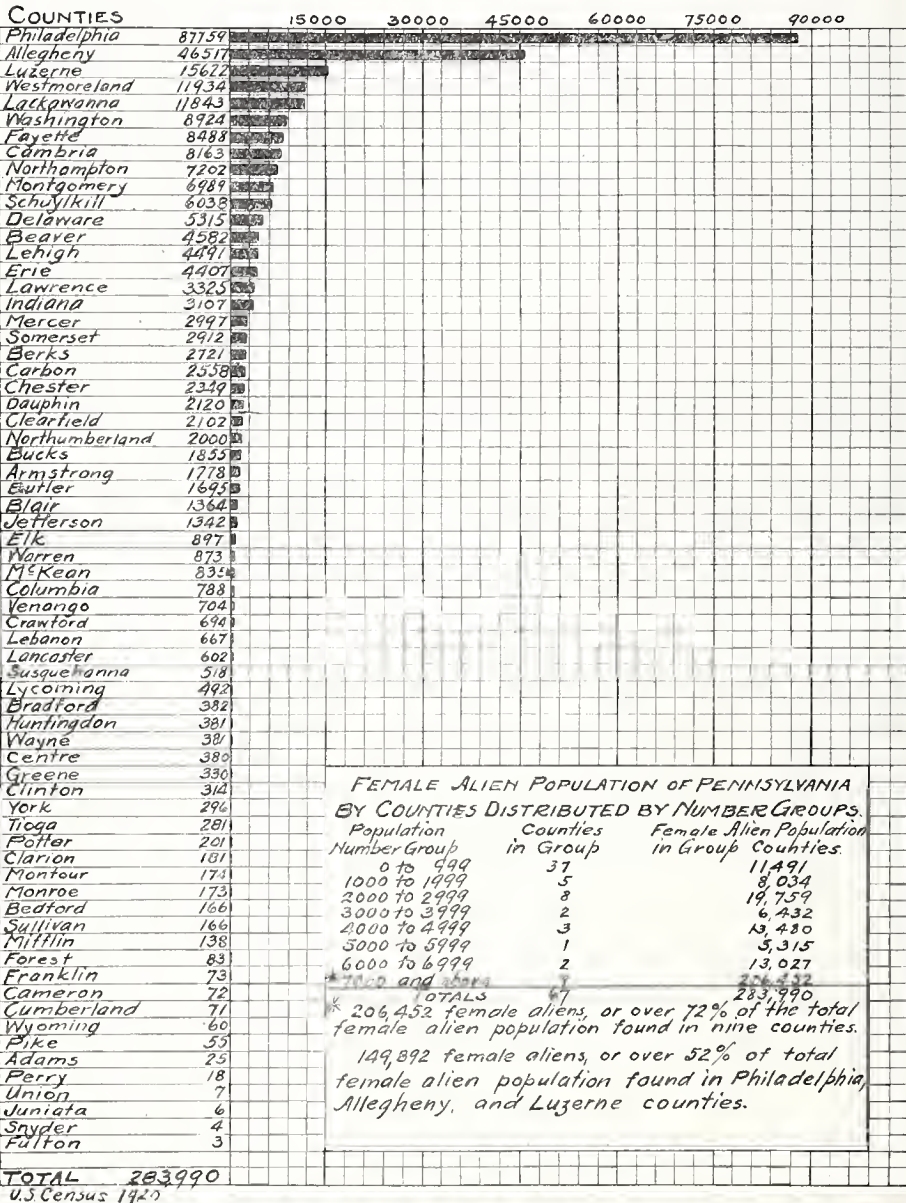 COUNTIES 15000 30000 45000 60000 75000 90000
Philadelphia 87759
Allegheny 46517
Luzerne 15622
Westmoreland 11934
Lackawanna 11843
Washington 8924
Fayette 8488
Cambria 8163
Northampton 7202
Montgomery 6989
Schuylkill 6038
Delaware 5315
Beaver 4582
Lehigh 4491
Erie 4407
Lawrence 3325
Indiana 3107
Mercer 2997
Somerset 2912
Berks 2721
Carbon 2558
Chester 2349
Dauphin 2120
Clearfield 2102
Northumberland 2000
Bucks 1855
Armstrong 1778
Butler 1695
Blair 1364
Jefferson 1342
Elk 897
Warren 873
McKean 835
Columbia 788
Venango 704
Crawford 694
Lebanon 667
Lancaster 602
Susquehanna 518
Lycoming 492
Bradford 382
Huntingdon 381
Wayne 381
Centre 380
Greene 330
Clinton 314
York 296
Tioga 281
Potter 201
Clarion 181
Montour 174
Monroe 173
Bedford 166
Sullivan 166
Mifflin 138
Forest 83
Franklin 73
Cameron 72
Cumberland 71
Wyoming 60
Pike 55
Adams 25
Perry 18
Union 7
Juniata 6
Snyder 4
Fulton 3
TOTAL 283,990
U.S. Census 1920
FEMALE ALIEN POPULATION OF PENNSYLVANIA
BY COUNTIES DISTRIBUTED BY NUMBER GROUPS.
Population Counties Female Alien Population
Number Group in Group in Group Counties.
0 to 999 37 11,491
1000 to 1999 5 8,034
2000 to 2999 8 19,759
3000 to 3999 2 6,432
4000 to 4999 3 13,480
5000 to 5999 1 5,315
6000 to 6999 2 13,027
* 7000 and above 9 206,452
TOTALS 67 283,990
* 206,452 female aliens, or over 72% of the total
female alien population found in nine counties.
149,892 female aliens, or over 52% of total
female alien population found in Philadelphia,
Allegheny, and Luzerne counties.